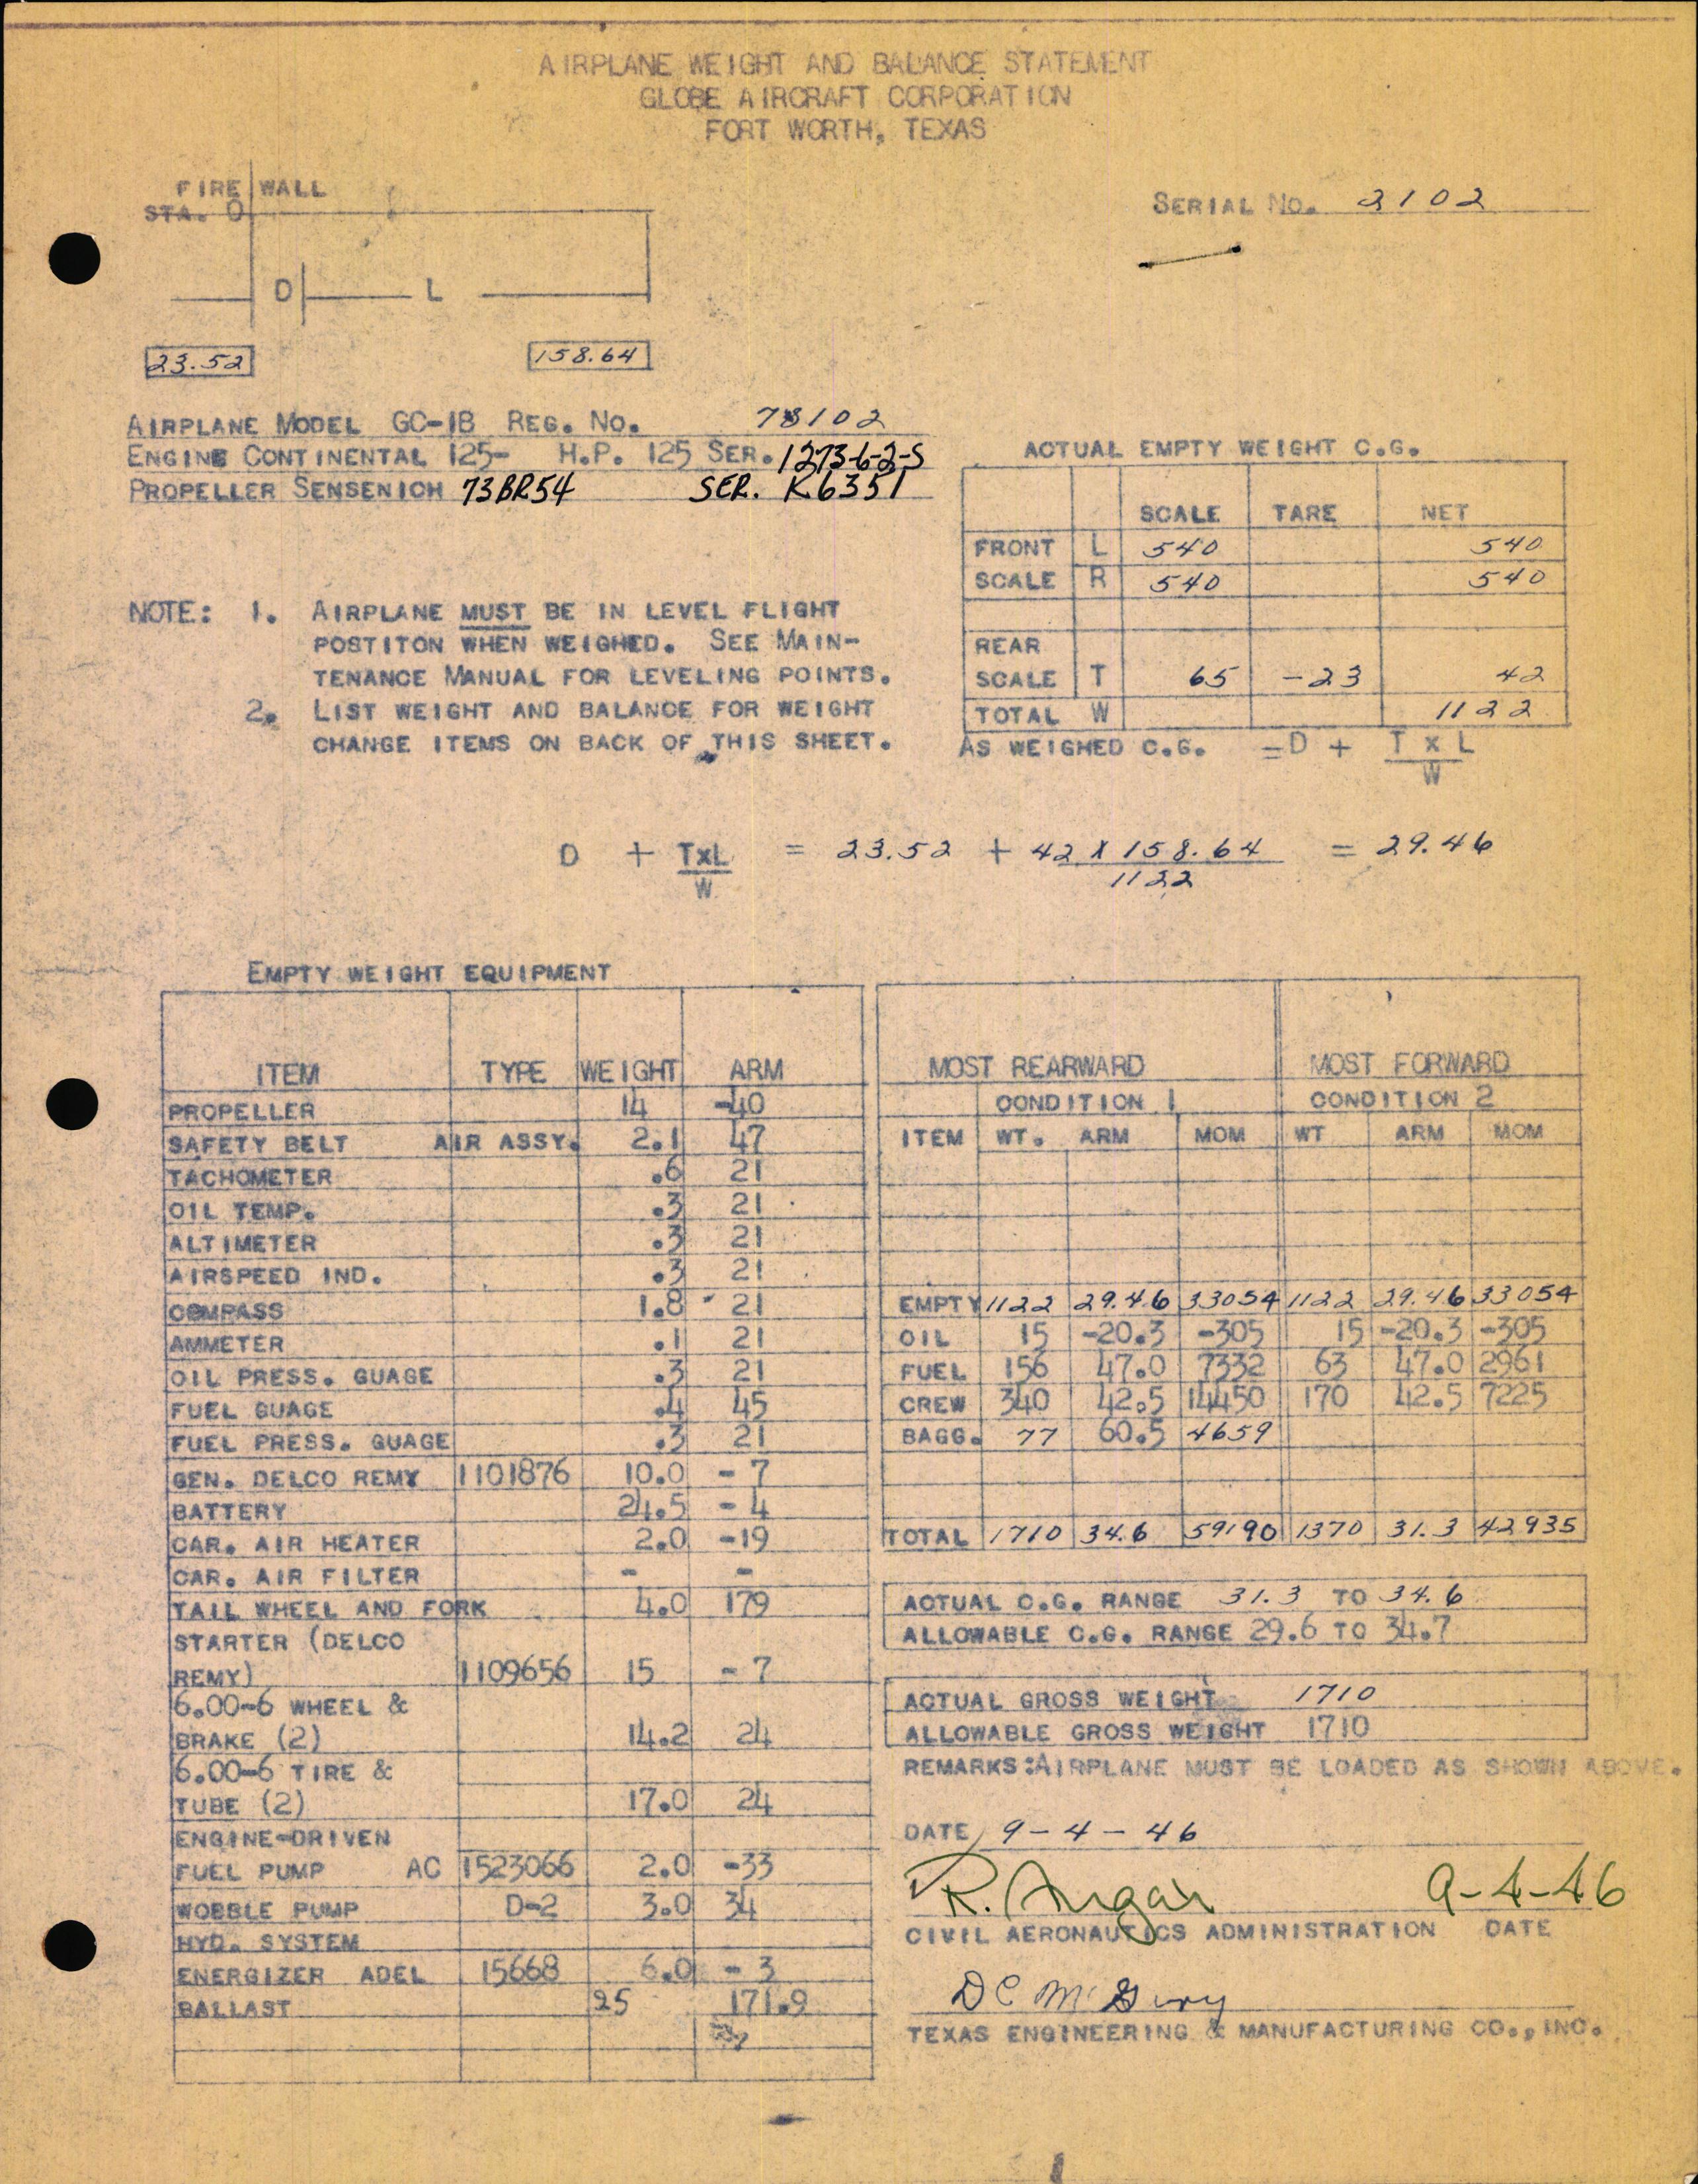 AIRPLANE WEIGHT AND BALANCE STATEMENT
GLOBE AIRCRAFT CORPORATION
FORT WORTH, TEXAS
FIRE WALL
STA. 0
SERIAL NO. 2102
D L
23.52 158.64
AIRPLANE MODEL GC-1B REG. NO. 78102
ENGINE CONTINENTAL 125- H.P. 125 SER. 12736-2-S
PROPELLER SENSENICH 73BR54 SER. K6351
ACTUAL EMPTY WEIGHT C.G.
SCALE TARE NET
FRONT L 540 540
SCALE R 540 540
REAR
SCALE T 65 -23 42
TOTAL W 1122
AS WEIGHED C.G. = D + T x L
W
NOTE: 1. AIRPLANE MUST BE IN LEVEL FLIGHT
POSTITON WHEN WEIGHED. SEE MAIN-
TENANCE MANUAL FOR LEVELING POINTS.
2. LIST WEIGHT AND BALANCE FOR WEIGHT
CHANGE ITEMS ON BACK OF THIS SHEET.
D + TxL = 23.52 + 42 X 158.64 = 29.46
W 1122
EMPTY WEIGHT EQUIPMENT
ITEM TYPE WEIGHT ARM
PROPELLER 14 -40
SAFETY BELT AIR ASSY. 2.1 47
TACHOMETER .6 21
OIL TEMP. .3 21
ALTIMETER .3 21
AIRSPEED IND. .3 21
COMPASS 1.8 21
AMMETER .1 21
OIL PRESS. GUAGE .3 21
FUEL GUAGE .4 45
FUEL PRESS. GUAGE .3 21
GEN. DELCO REMY 1101876 10.0 - 7
BATTERY 24.5 - 4
CAR. AIR HEATER 2.0 -19
CAR. AIR FILTER - -
TAIL WHEEL AND FORK 4.0 179
STARTER (DELCO
REMY) 1109656 15 - 7
6.00-6 WHEEL &
BRAKE (2) 14.2 24
6.00-6 TIRE &
TUBE (2) 17.0 24
ENGINE-DRIVEN
FUEL PUMP AC 1523066 2.0 -33
WOBBLE PUMP D-2 3.0 34
HYD. SYSTEM
ENERGIZER ADEL 15668 6.0 - 3
BALLAST 25 171.9
MOST REARWARD MOST FORWARD
CONDITION 1 CONDITION 2
ITEM WT. ARM MOM WT ARM MOM
EMPTY 1122 29.46 33054 1122 29.46 33054
OIL 15 -20.3 -305 15 -20.3 -305
FUEL 156 47.0 7332 63 47.0 2961
CREW 340 42.5 14450 170 42.5 7225
BAGG. 77 60.5 4659
TOTAL 1710 34.6 59190 1370 31.3 42935
ACTUAL C.G. RANGE 31.3 TO 34.6
ALLOWABLE C.G. RANGE 29.6 TO 34.7
ACTUAL GROSS WEIGHT 1710
ALLOWABLE GROSS WEIGHT 1710
REMARKS:AIRPLANE MUST BE LOADED AS SHOWN ABOVE.
DATE 9-4-46
R. 9-4-46
CIVIL AERONAUTICS ADMINISTRATION DATE
TEXAS ENGINEERING & MANUFACTURING CO., INC.